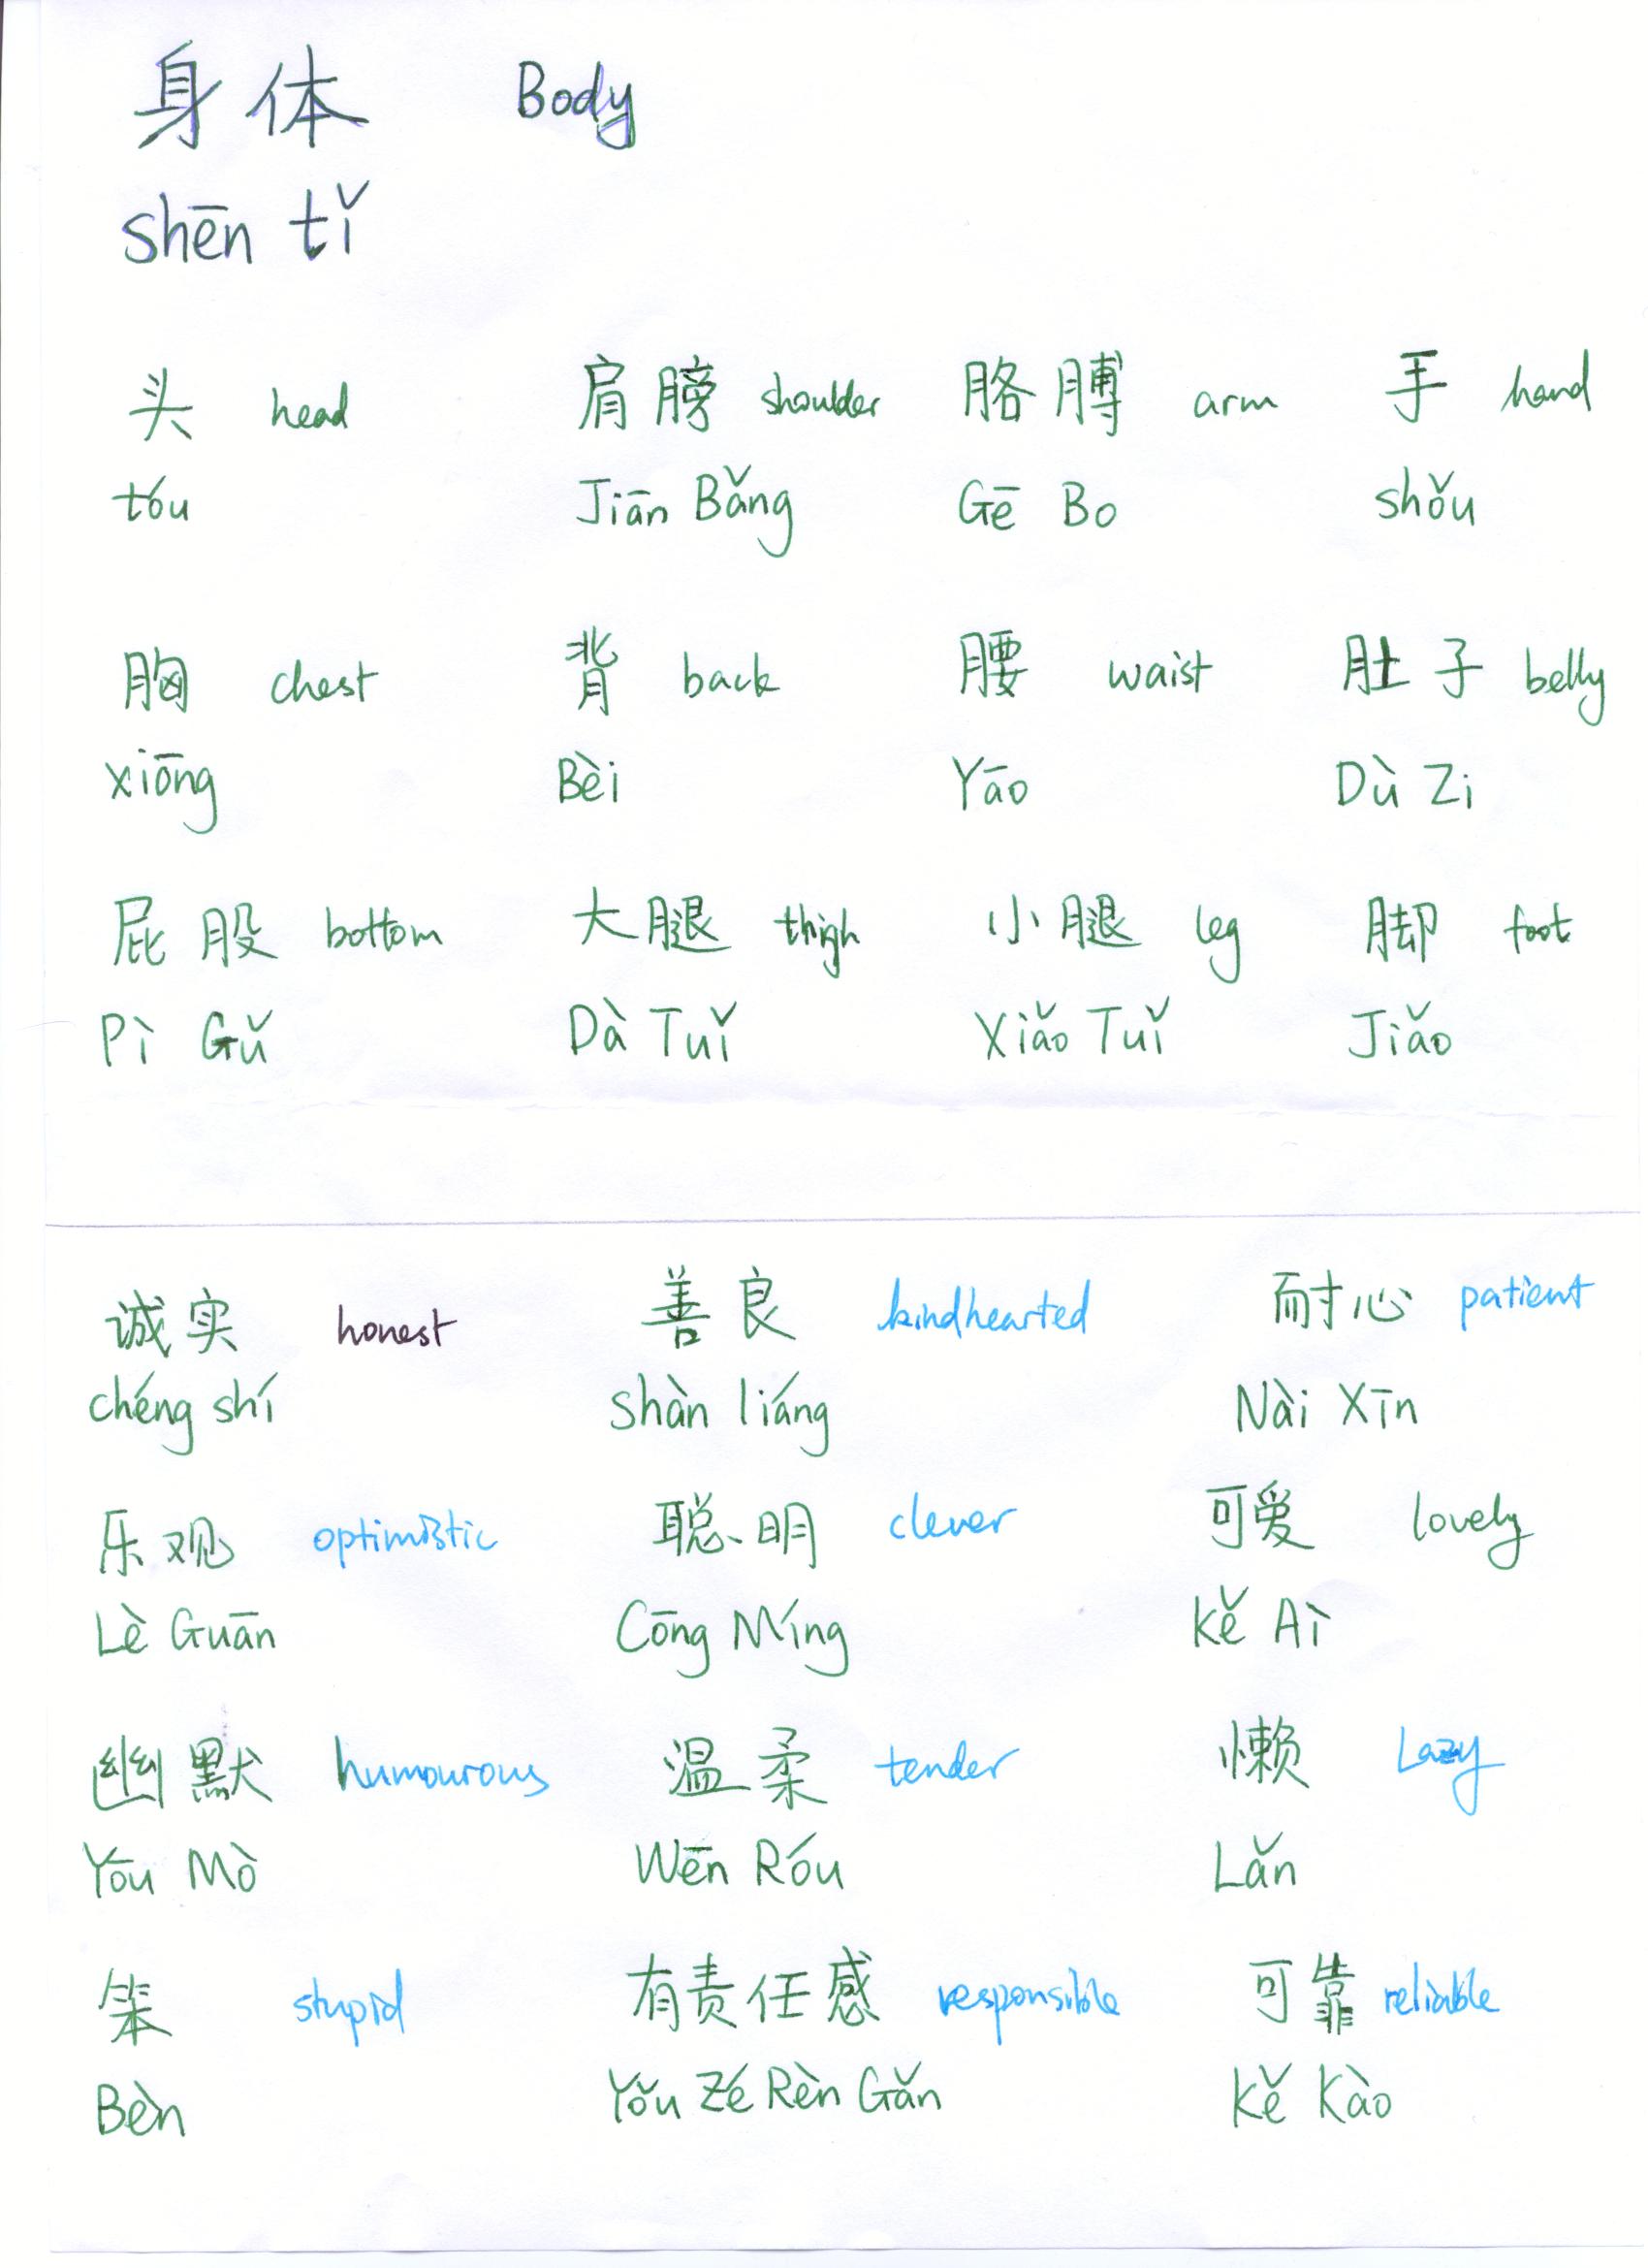 身体 Body
shēn tǐ
头 head 肩膀 shoulder 胳膊 arm 手 hand
tóu Jiān Bǎng Gē Bo shǒu
胸 chest 背 back 腰 waist 肚子 belly
xiōng Bèi Yāo Dù Zi
屁股 bottom 大腿 thigh 小腿 leg 脚 foot
Pì Gǔ Dà Tuǐ Xiǎo Tuǐ Jiǎo
诚实 honest 善良 kindhearted 耐心 patient
chéng shí shàn liáng Nài Xīn
乐观 optimistic 聪明 clever 可爱 lovely
Lè Guān Cōng Míng Kě Ài
幽默 humourous 温柔 tender 懒 Lazy
Yōu Mò Wēn Róu Lǎn
笨 stupid 有责任感 responsible 可靠 reliable
Bèn Yǒu Zé Rèn Gǎn Kě Kào